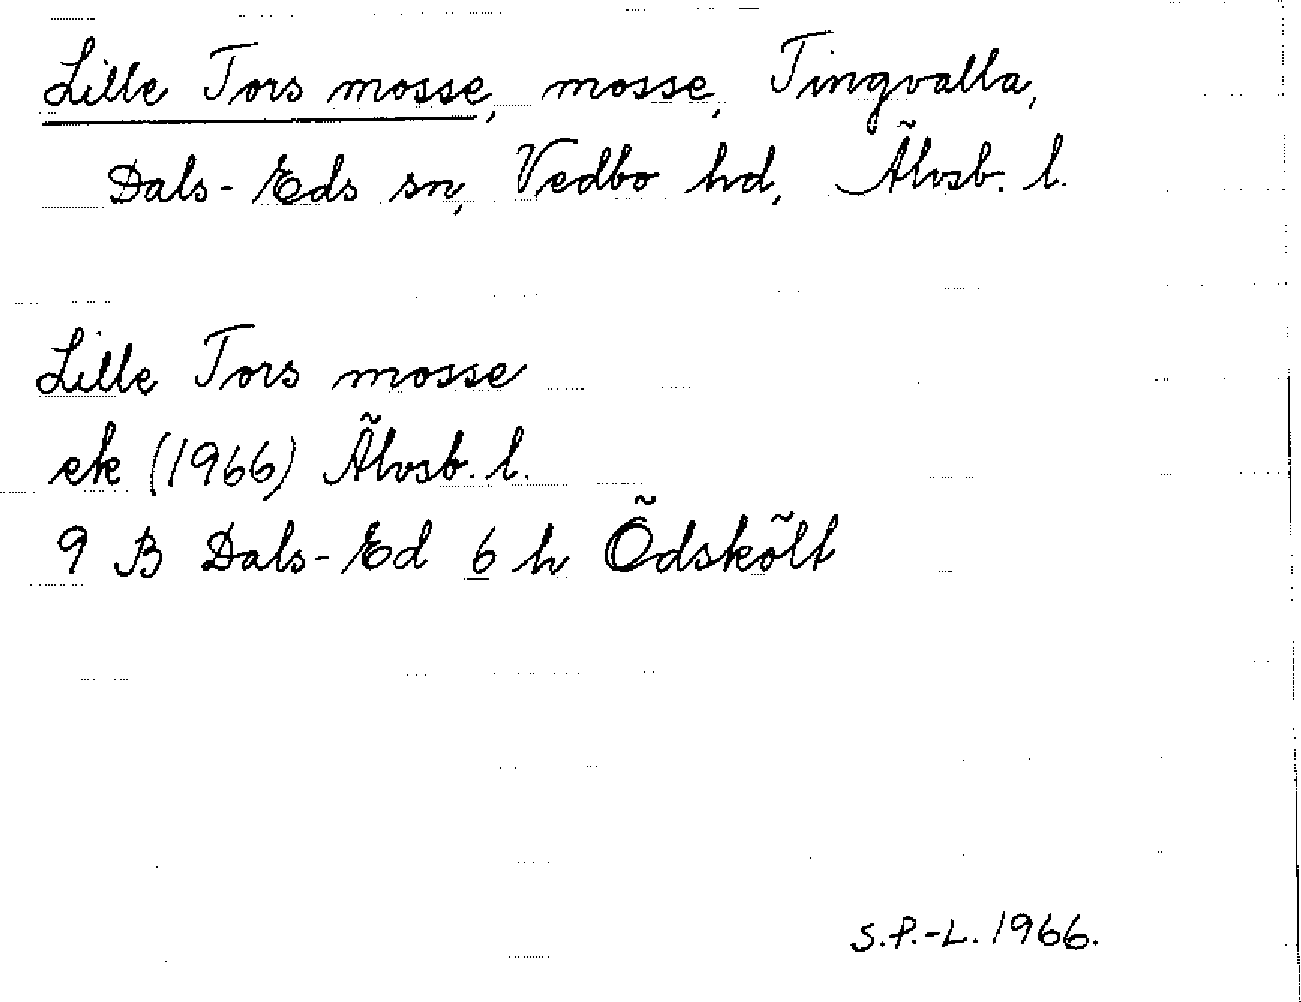 Lille Tors mosse, mosse, Tingvalla,
Dals-Eds sn, Vedbo hd, Älvsb. l.
Lille Tors mosse
ek (1966) Älvsb. l.
9 B Dals-Ed 6 h Ödskölt
S.P.-L. 1966.